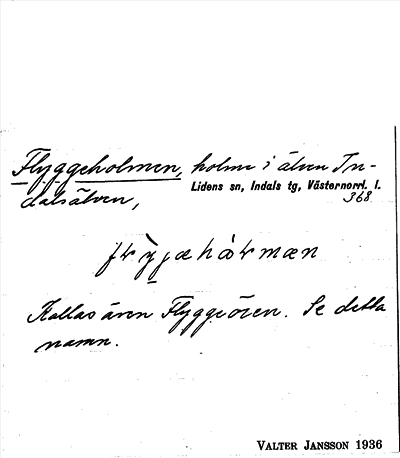 Flyggeholmen, holme i älven In-
Lidens sn, Indals tg, Västernorrl. l.
dalsälven,
368
Kallas även Flyggeösen. Se detta
namn.
VALTER JANSSON 1936